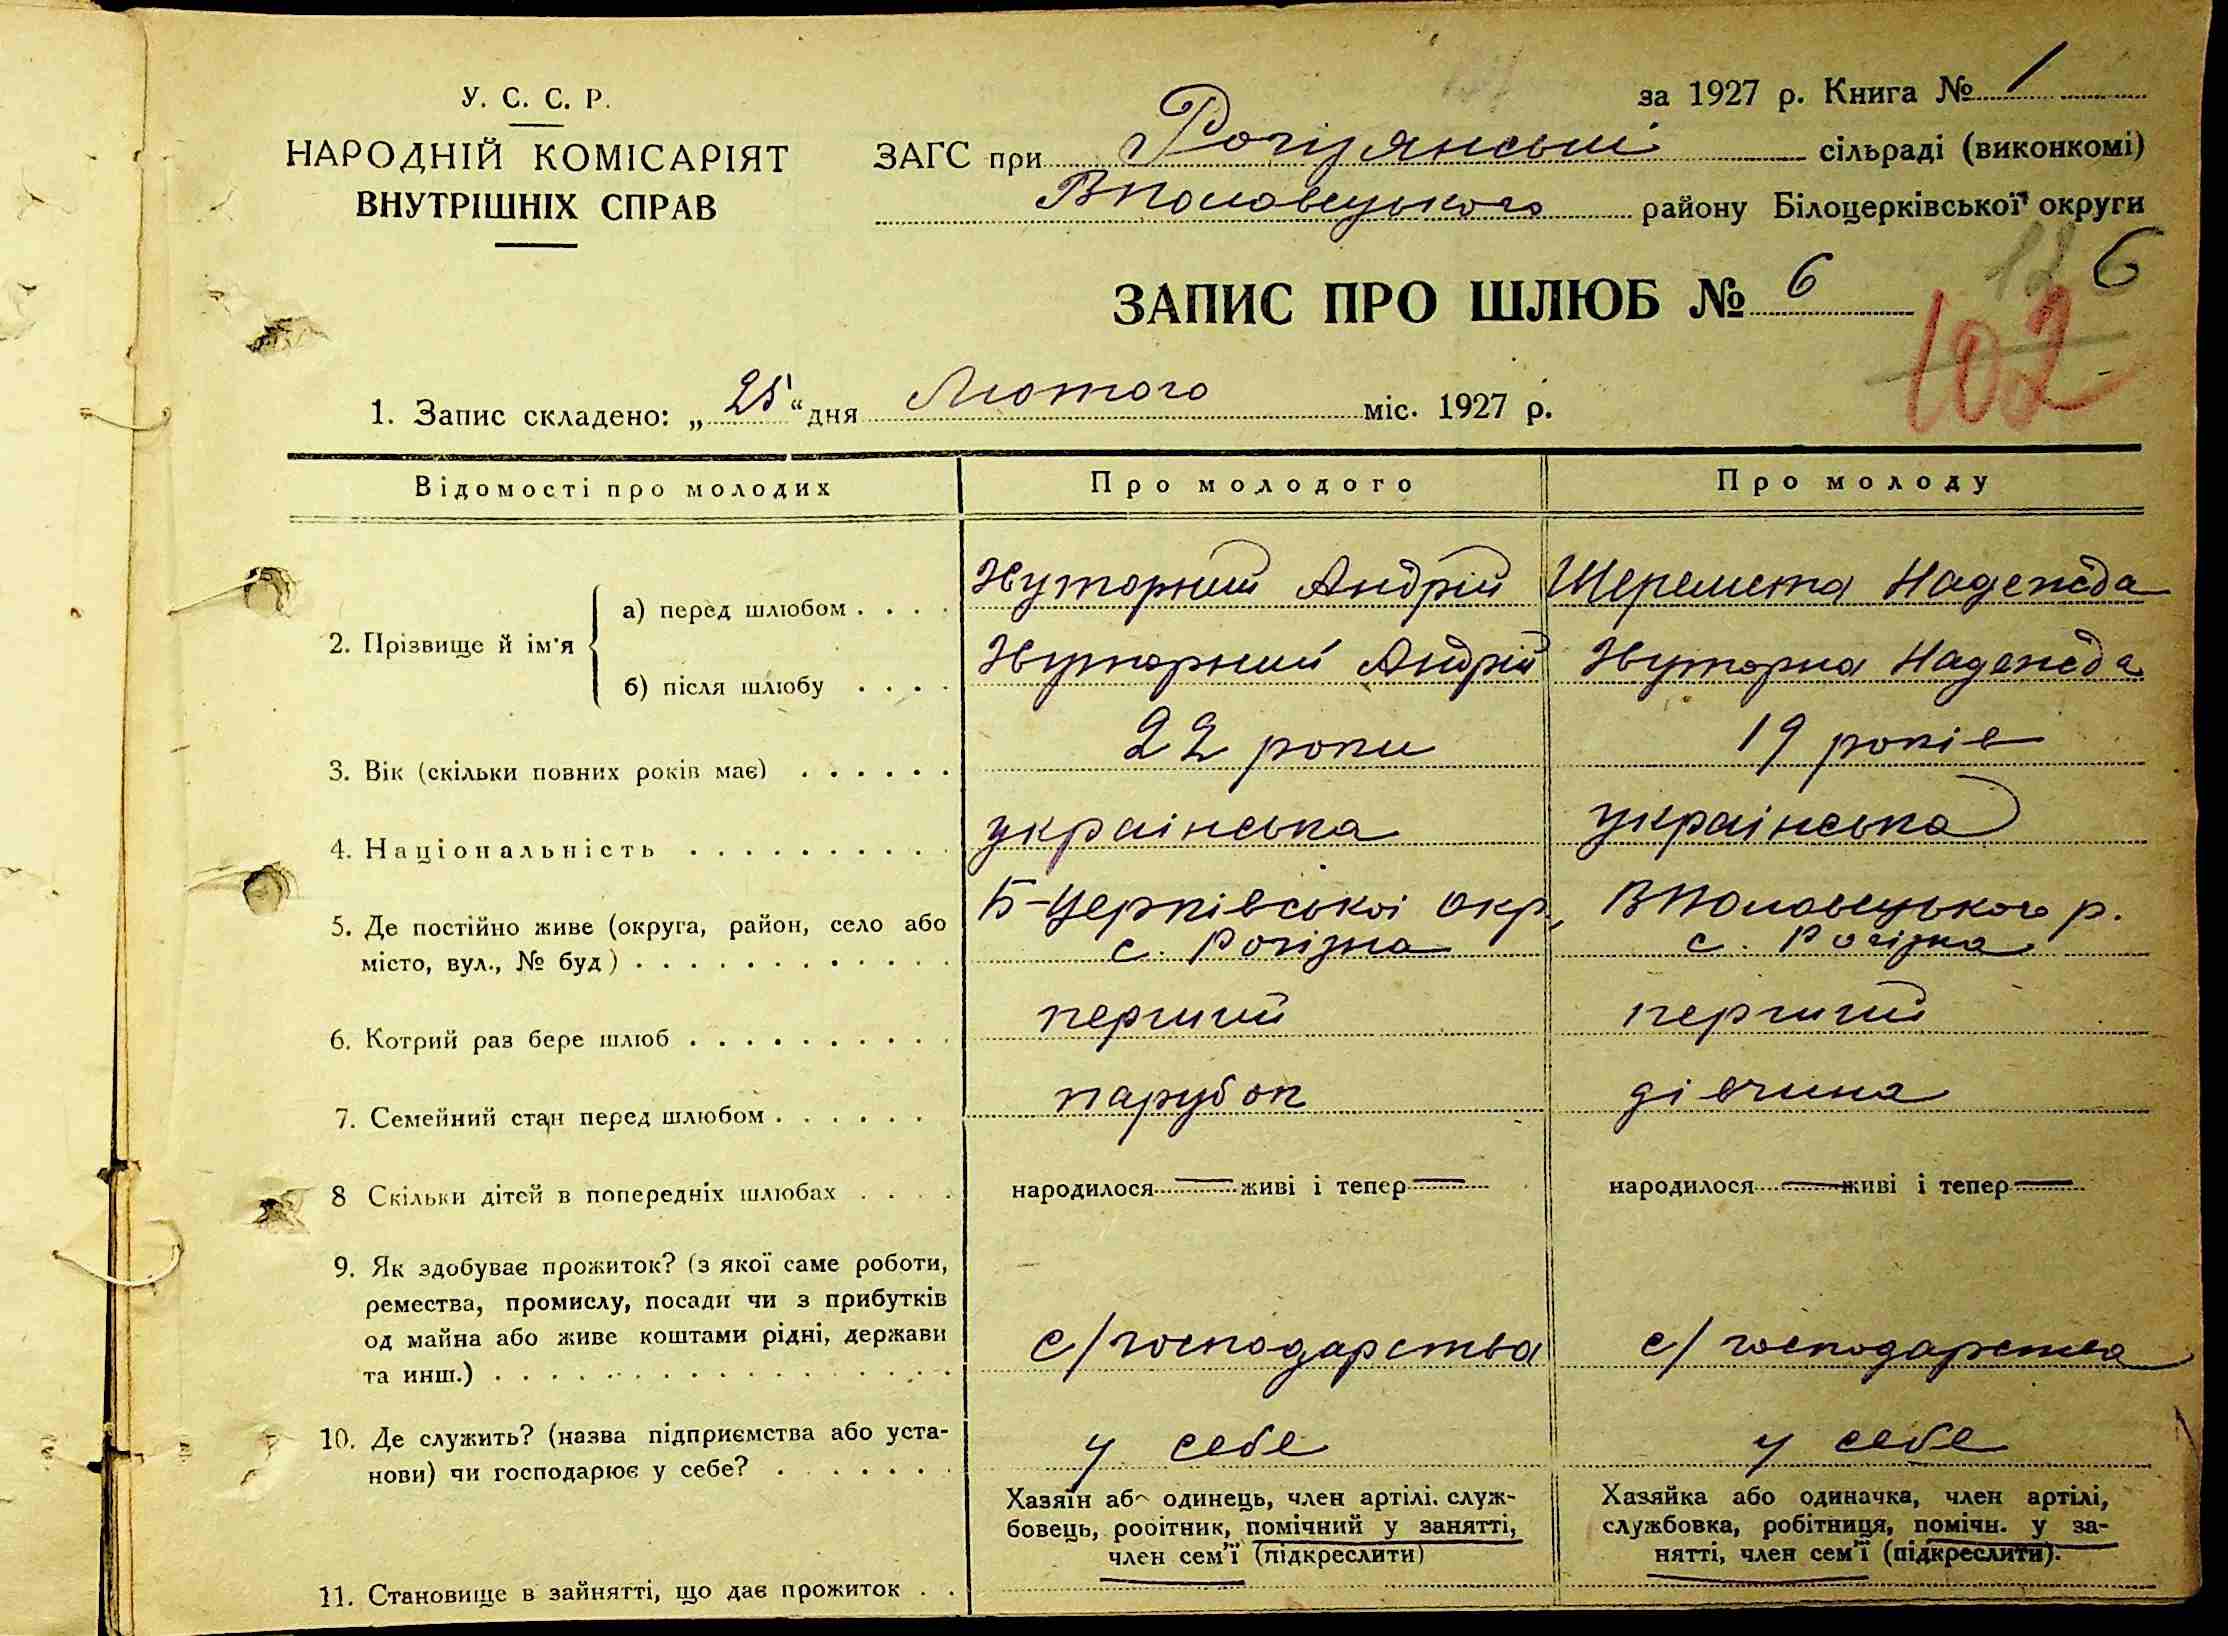 У. С. С. Р.
НАРОДНІЙ КОМІСАРІЯТ
ВНУТРІШНІХ СПРАВ
за 1927 р. Книга № 1
ЗАГС при Рогізянські сільраді (виконкомі)
ВПоловецького району Білоцерківської округи
ЗАПИС ПРО ШЛЮБ № 6
12 6
102
1. Запис складено: „25“ дня Лютого міс. 1927 р.
Відомості про молодих Про молодого Про молоду
2. Прізвище й ім'я
а) перед шлюбом . . . . Хуторний Андрій Шеремета Надежда
б) після шлюбу . . . . Хуторний Андрій Хуторна Надежда
3. Вік (скільки повних років має) . . . . . . 22 роки 19 років
4. Національність . . . . . . . . . . українська українська
5. Де постійно живе (округа, район, село або Б-Церківської окр, ВПоловецького р.
місто, вул., № буд) . . . . . . . . . . . . с. Рогізна с. Рогізна
6. Котрий раз бере шлюб . . . . . . . . . . перший перший
7. Семейний стан перед шлюбом . . . . . . парубок дівчина
8 Скільки дітей в попередніх шлюбах . . . . народилося — живі і тепер — народилося — живі і тепер —
9. Як здобуває прожиток? (з якої саме роботи,
ремества, промислу, посади чи з прибутків
од майна або живе коштами рідні, держави
та инш.) . . . . . . . . . . . . . . . . . с/господарства с/господарства
10. Де служить? (назва підприємства або уста-
нови) чи господарює у себе? . . . . . . . у себе у себе
Хазяїн або одинець, член артілі, служ-
бовець, робітник, помічний у занятті,
член сем'ї (підкреслити)
Хазяйка або одиначка, член артілі,
службовка, робітниця, помічн. у за-
нятті, член сем'ї (підкреслити).
11. Становище в зайнятті, що дає прожиток . .